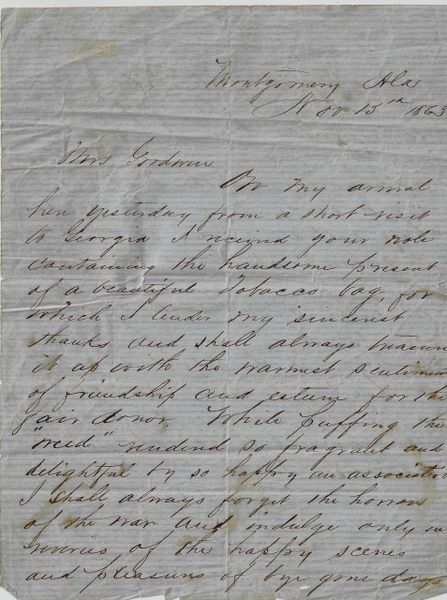 Montgomery Ala
Nov 15th 1863
Mrs Goodwin
On my arrival
here yesterday from a short visit
to Georgia I recieved your note
containing the handsome present
of a beautiful Tobacco bag, for
which I tender my sincerest
thanks and shall always treasure
it up with the warmest sentiments
of friendship and esteem for the
fair donor. While puffing the
"weed" rendered so fragrant and
delightful by so happy an association
I shall always forget the horrors
of the war and indulge only in
reveries of the happy scenes
and pleasures of bye gone days